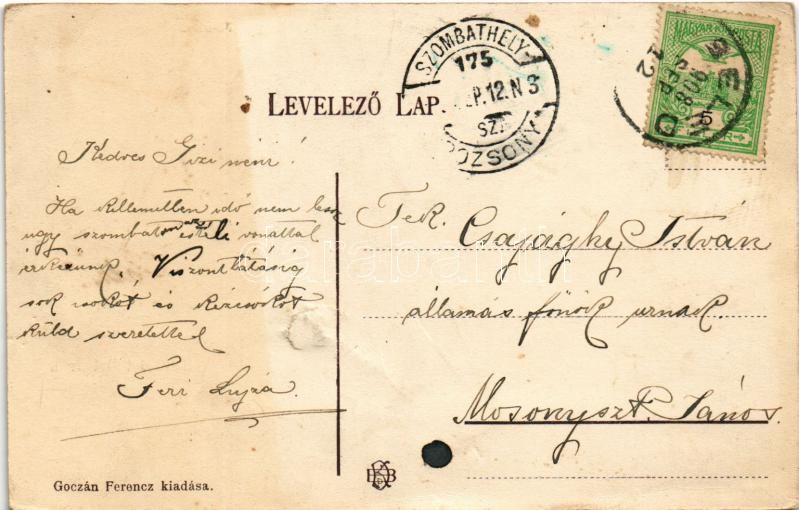 LEVELEZŐ LAP.
SZOMBATHELY
175
P.12.N 3
SZ
POZSONY
MAGYAR KIR. POSTA
908
SEP
12
Kedves Gizi néni!
Ha kellemetlen idő nem lesz
úgy szombaton az esteli vonattal
érkezünk. Viszontlátásig
sok csókot és kézcsókot
küld szeretettel
Feri Lujza
Tek. Csajághy István
állomás főnök urnak.
Mosonyszt. János.
Goczán Ferencz kiadása.